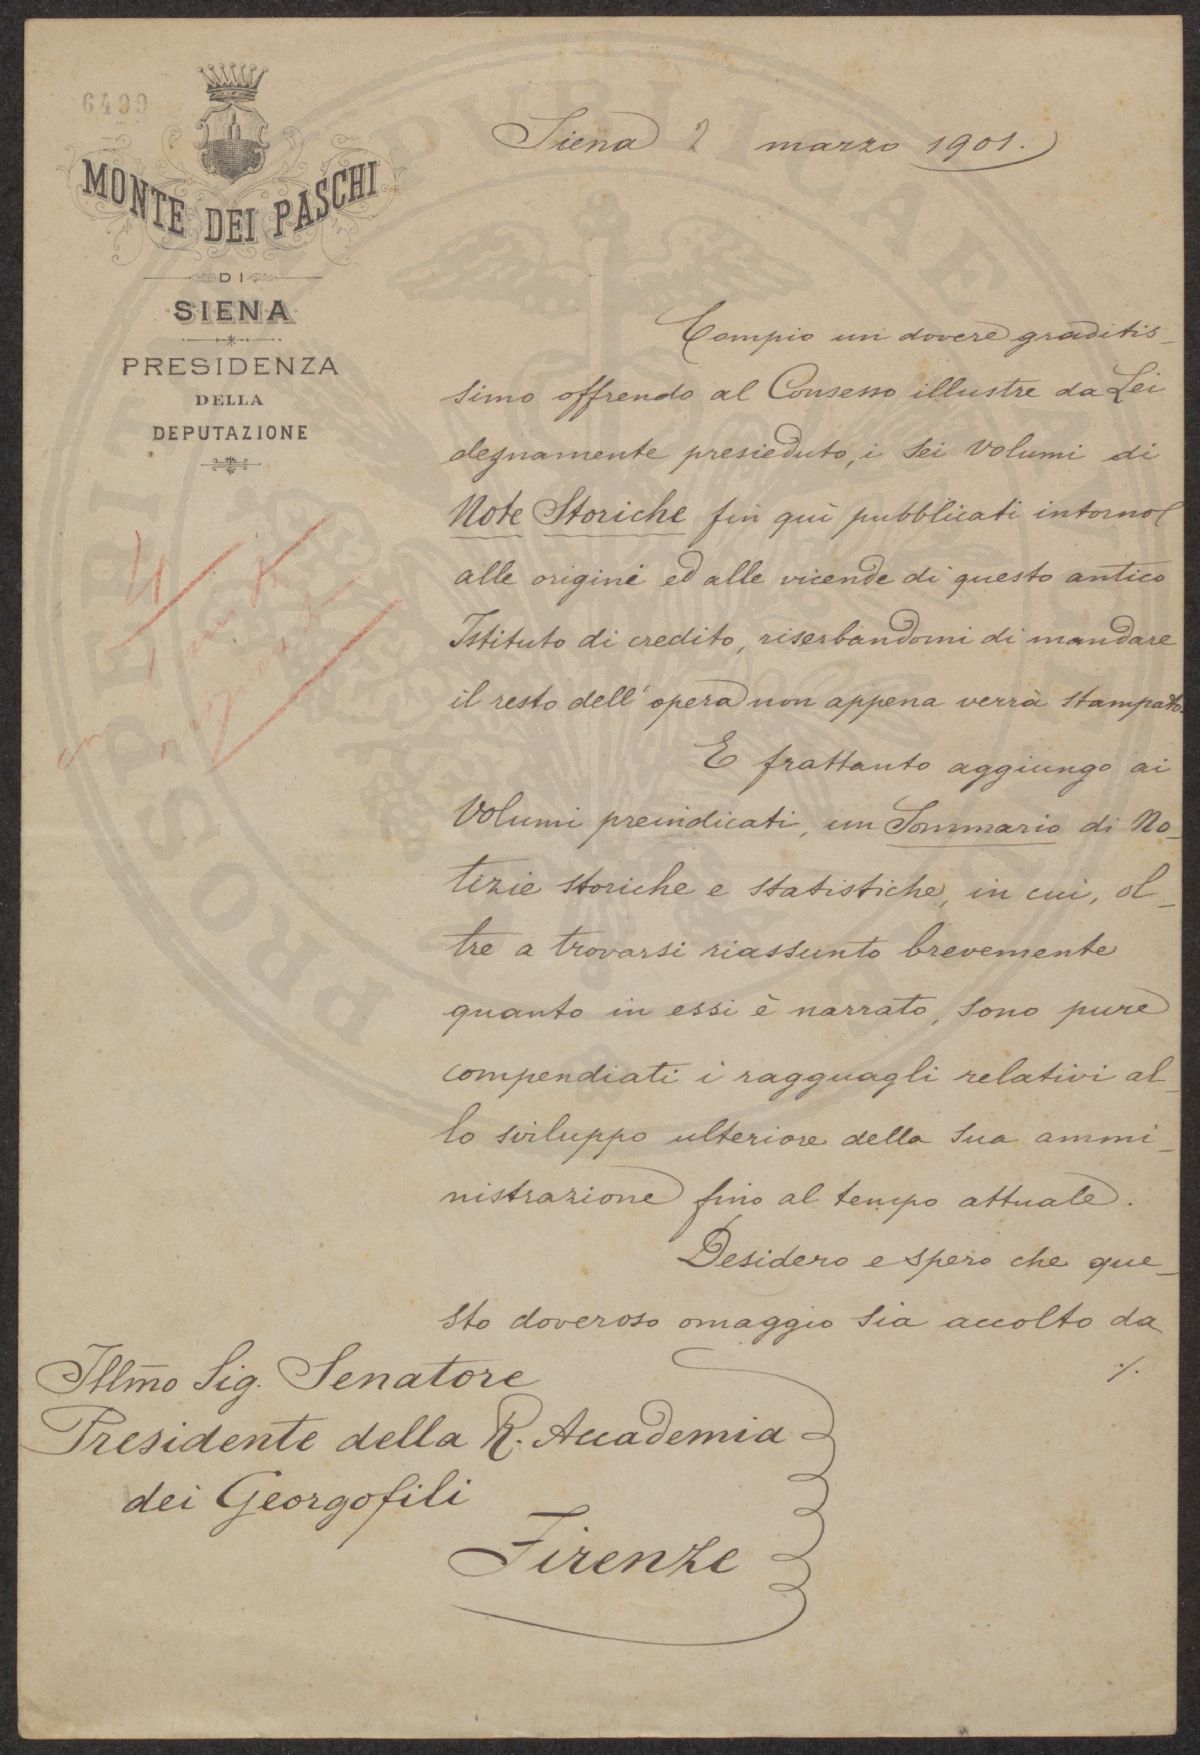 6499
MONTE DEI PASCHI
DI
SIENA
PRESIDENZA
DELLA
DEPUTAZIONE
Siena 2 marzo 1901.
Compio un dovere graditis-
simo offrendo al Consesso illustre da Lei
degnamente presieduto, i sei volumi di
Note Storiche fin quì pubblicati intorno
alle origini ed alle vicende di questo antico
Istituto di credito, riserbandomi di mandare
il resto dell'opera non appena verrà stampato.
E frattanto aggiungo ai
Volumi preindicati, un Sommario di No-
tizie storiche e statistiche, in cui, ol-
tre a trovarsi riassunto brevemente
quanto in essi è narrato, sono pure
compendiati i ragguagli relativi al-
lo sviluppo ulteriore della sua ammi-
nistrazione fino al tempo attuale.
Desidero e spero che que-
sto doveroso omaggio sia accolto da
./.
Illmo Sig. Senatore
Presidente della R. Accademia
dei Georgofili
Firenze